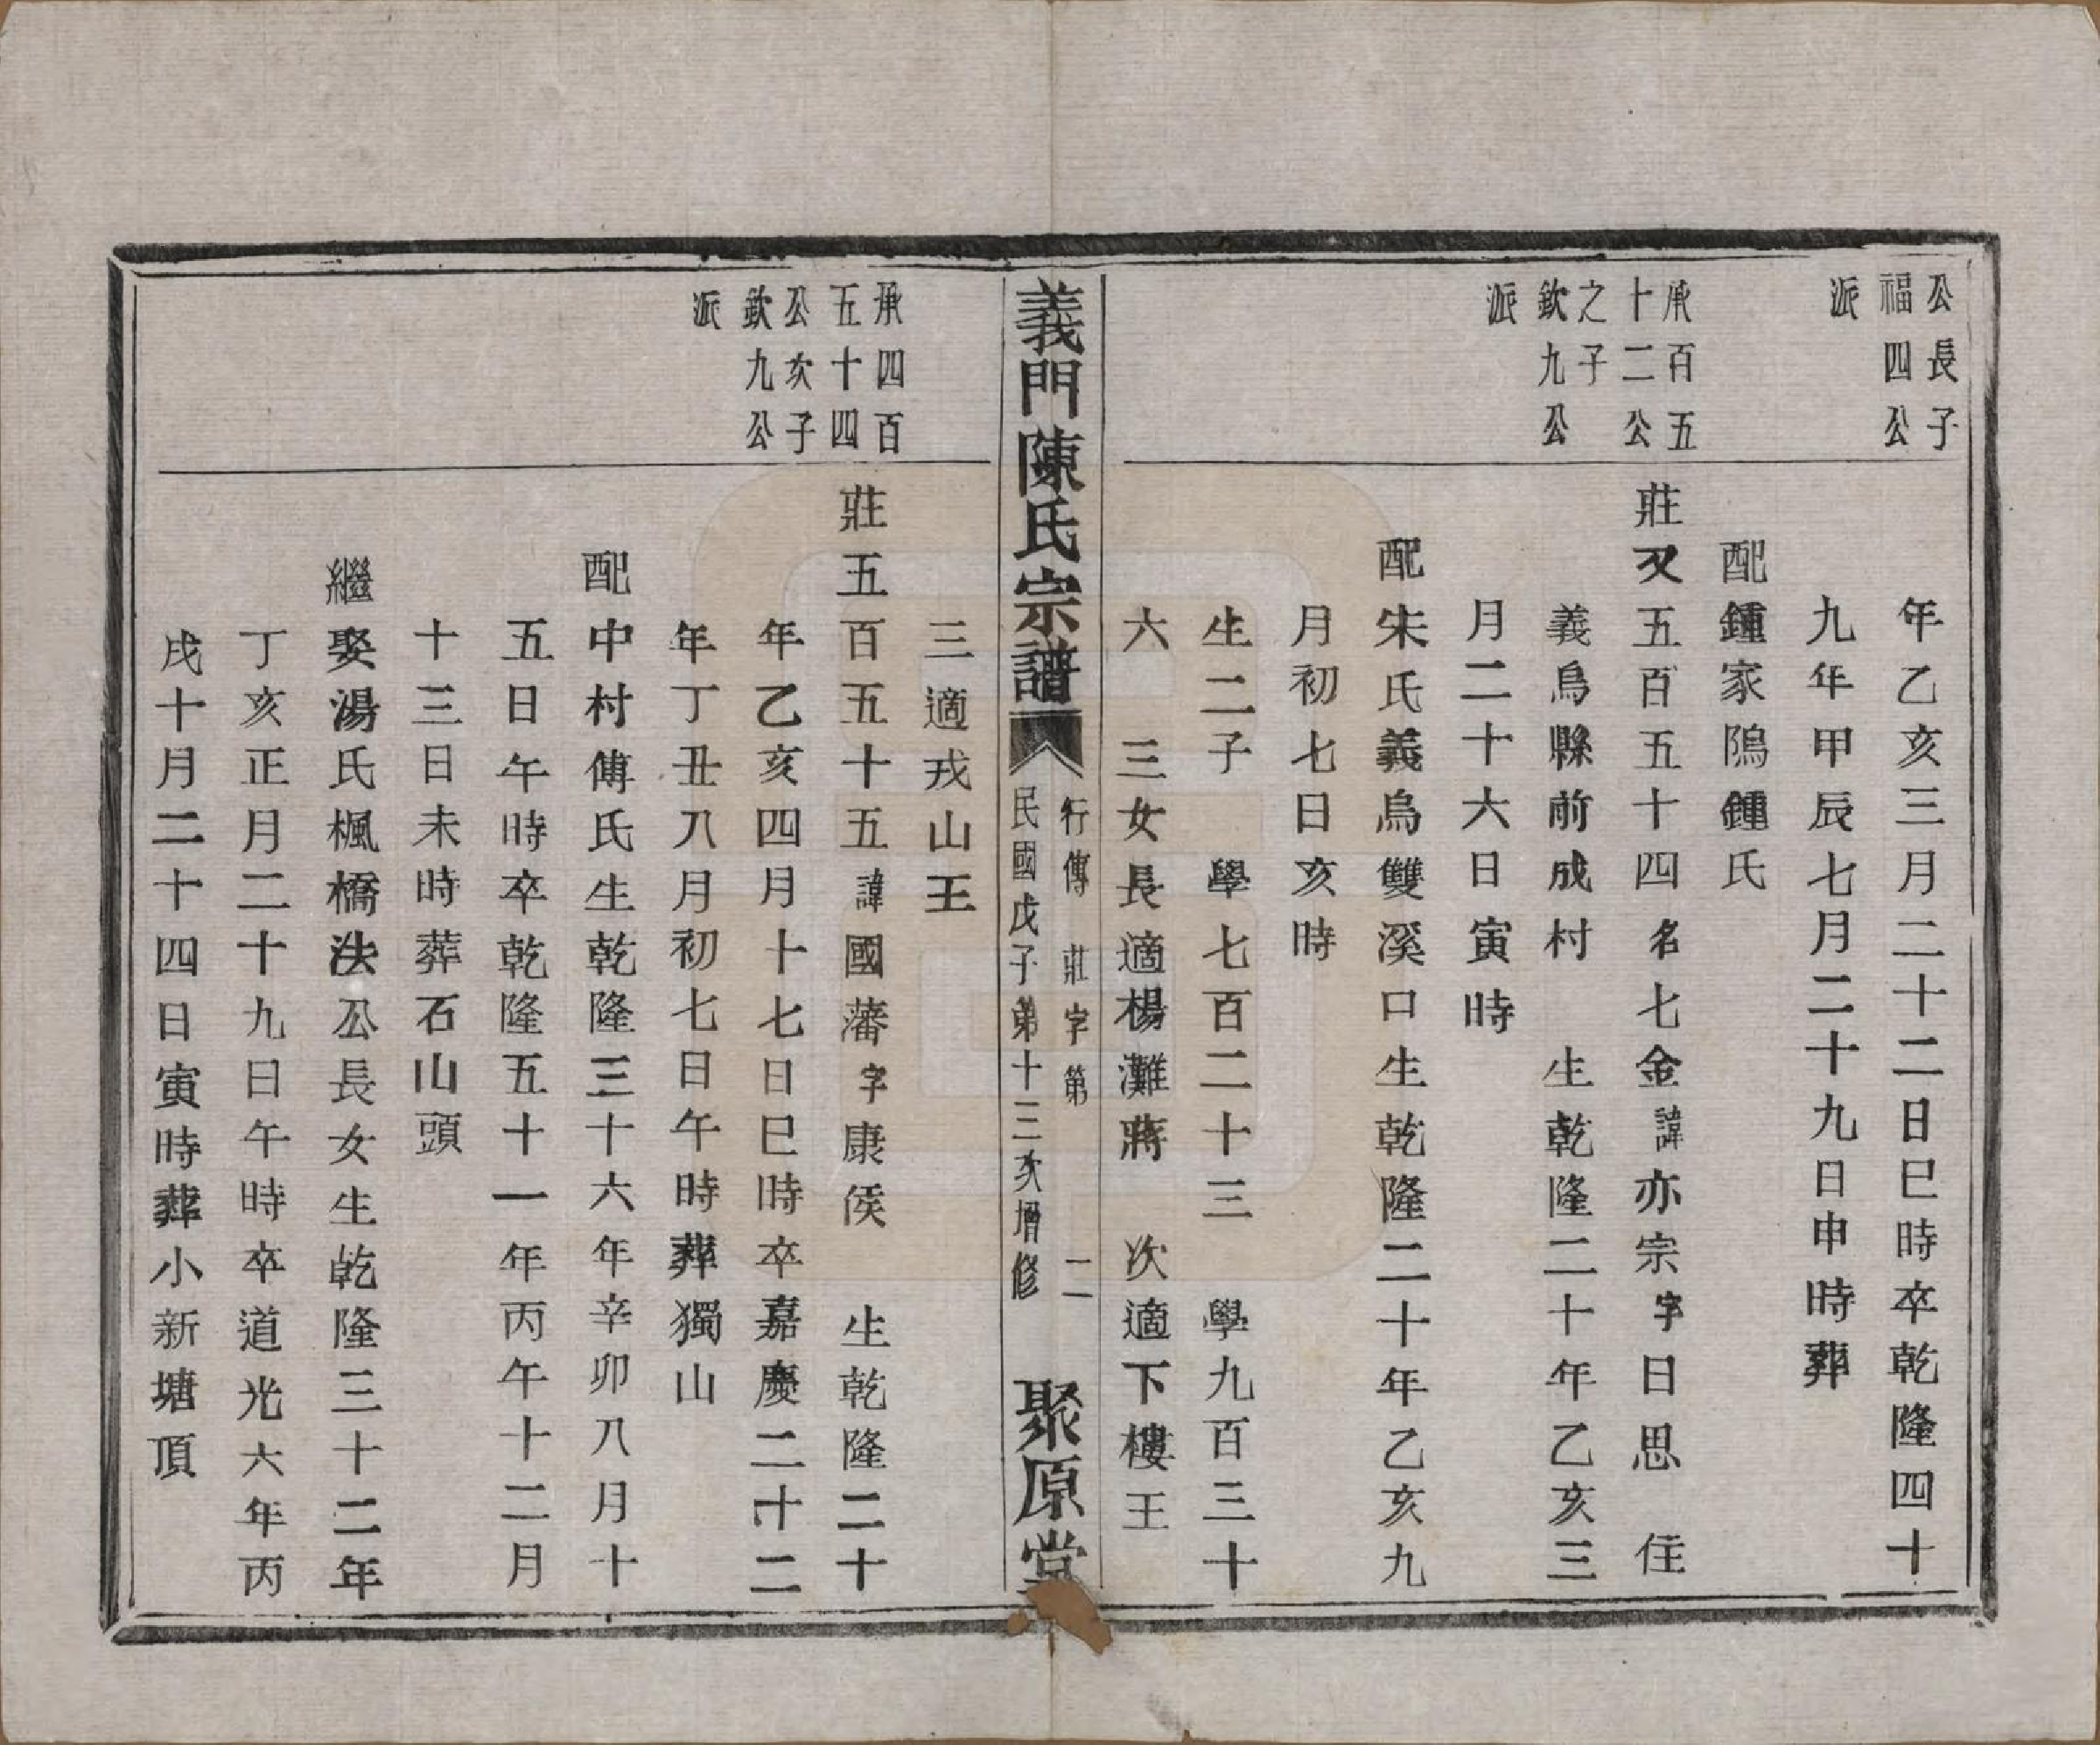 公長子
福四公
派
年乙亥三月二十二日巳時卒乾隆四十
九年甲辰七月二十九日申時葬
配鍾家隝鍾氏
承百五
十二公
之子
欽九公
派
莊又五百五十四名七金諱亦宗字日思 住
義烏縣前成村 生乾隆二十年乙亥三
月二十六日寅時
配朱氏義烏雙溪口生乾隆二十年乙亥九
月初七日亥時
生二子 學七百二十三 學九百三十
六 三女長適楊灘蔣 次適下樓王
義門陳氏宗譜
行傳 莊字第 二
民國戊子第十三次增修
聚原堂
三適戎山王
承四百
五十四
公次子
欽九公
派
莊五百五十五諱國藩字康侯 生乾隆二十
年乙亥四月十七日巳時卒嘉慶二十二
年丁丑八月初七日午時葬獨山
配中村傅氏生乾隆三十六年辛卯八月十
五日午時卒乾隆五十一年丙午十二月
十三日未時葬石山頭
繼娶湯氏楓橋泆公長女生乾隆三十二年
丁亥正月二十九日午時卒道光六年丙
戌十月二十四日寅時葬小新塘頂